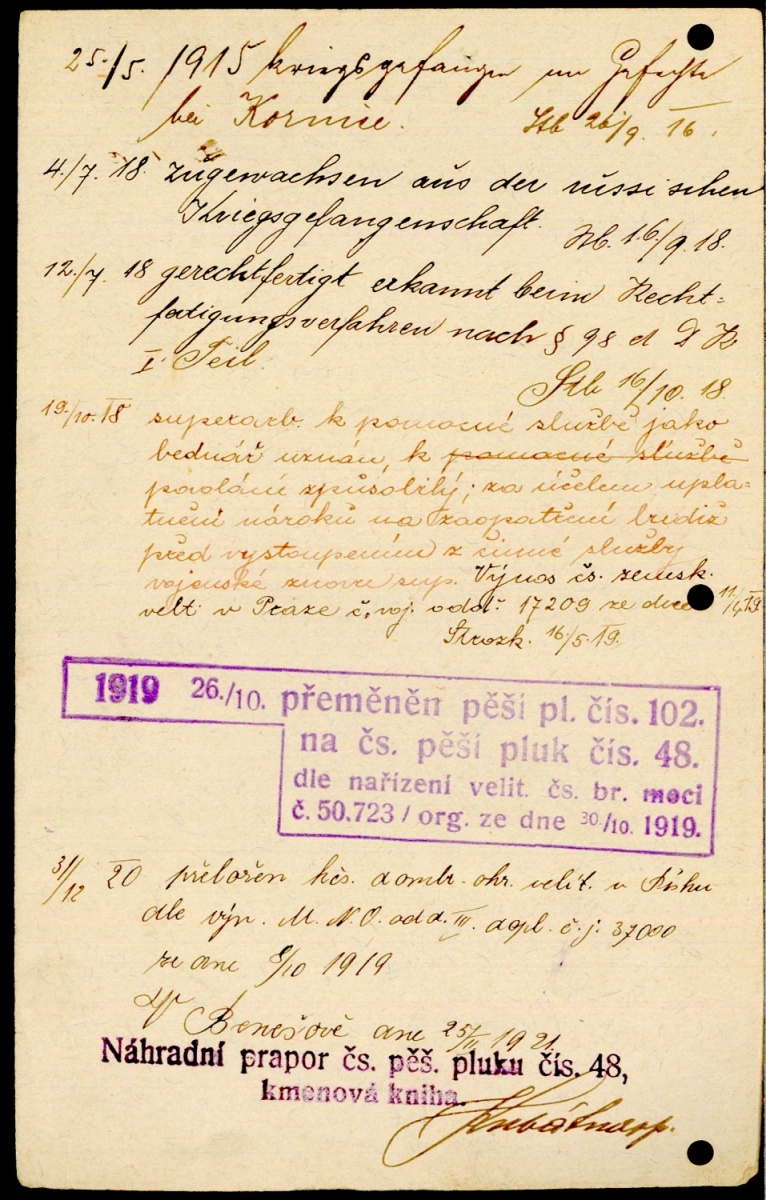 25./5. 1915 kriegsgefangen im Gefechte
bei Kornice. Stb 26/9. 16.
4./7. 18. zugewachsen aus der russischen
Kriegsgefangenschaft. Stb. 16/9. 18.
12./7. 18 gerechtfertigt erkannt beim Recht=
fertigungsverfahren nach § 98 d D K
I. Teil.
Stb 16/10. 18.
19./10. 18 superarb. k pomocné službě jako
bednář uznán, k pomocné službě
povolání způsobilý; za účelem upla-
tnění nároků na zaopatření budiž
před vystoupením z činné služby
vojenské znovu sup. Výnos čs. zemsk.
velt. v Praze č. voj. odd: 17209 ze dne 11/4 19.
Strozk. 16/5. 19.
1919 26./10. přeměněn pěší pl. čís. 102.
na čs. pěší pluk čís. 48.
dle nařízení velit. čs. br. moci
č. 50.723 / org. ze dne 30./10. 1919.
31/12 20 přeložen dombr. okr. velit. v Písku
dle výn. M. N. O. odd. III. dopl. č. j. 37000
ze dne 1919
V Benešově dne 25/II 1921.
Náhradní prapor čs. pěš. pluku čís. 48,
kmenová kniha.